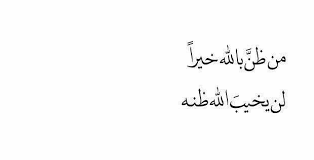 من ظنَّ بالله خيراً
لن يخيبَ الله ظنه